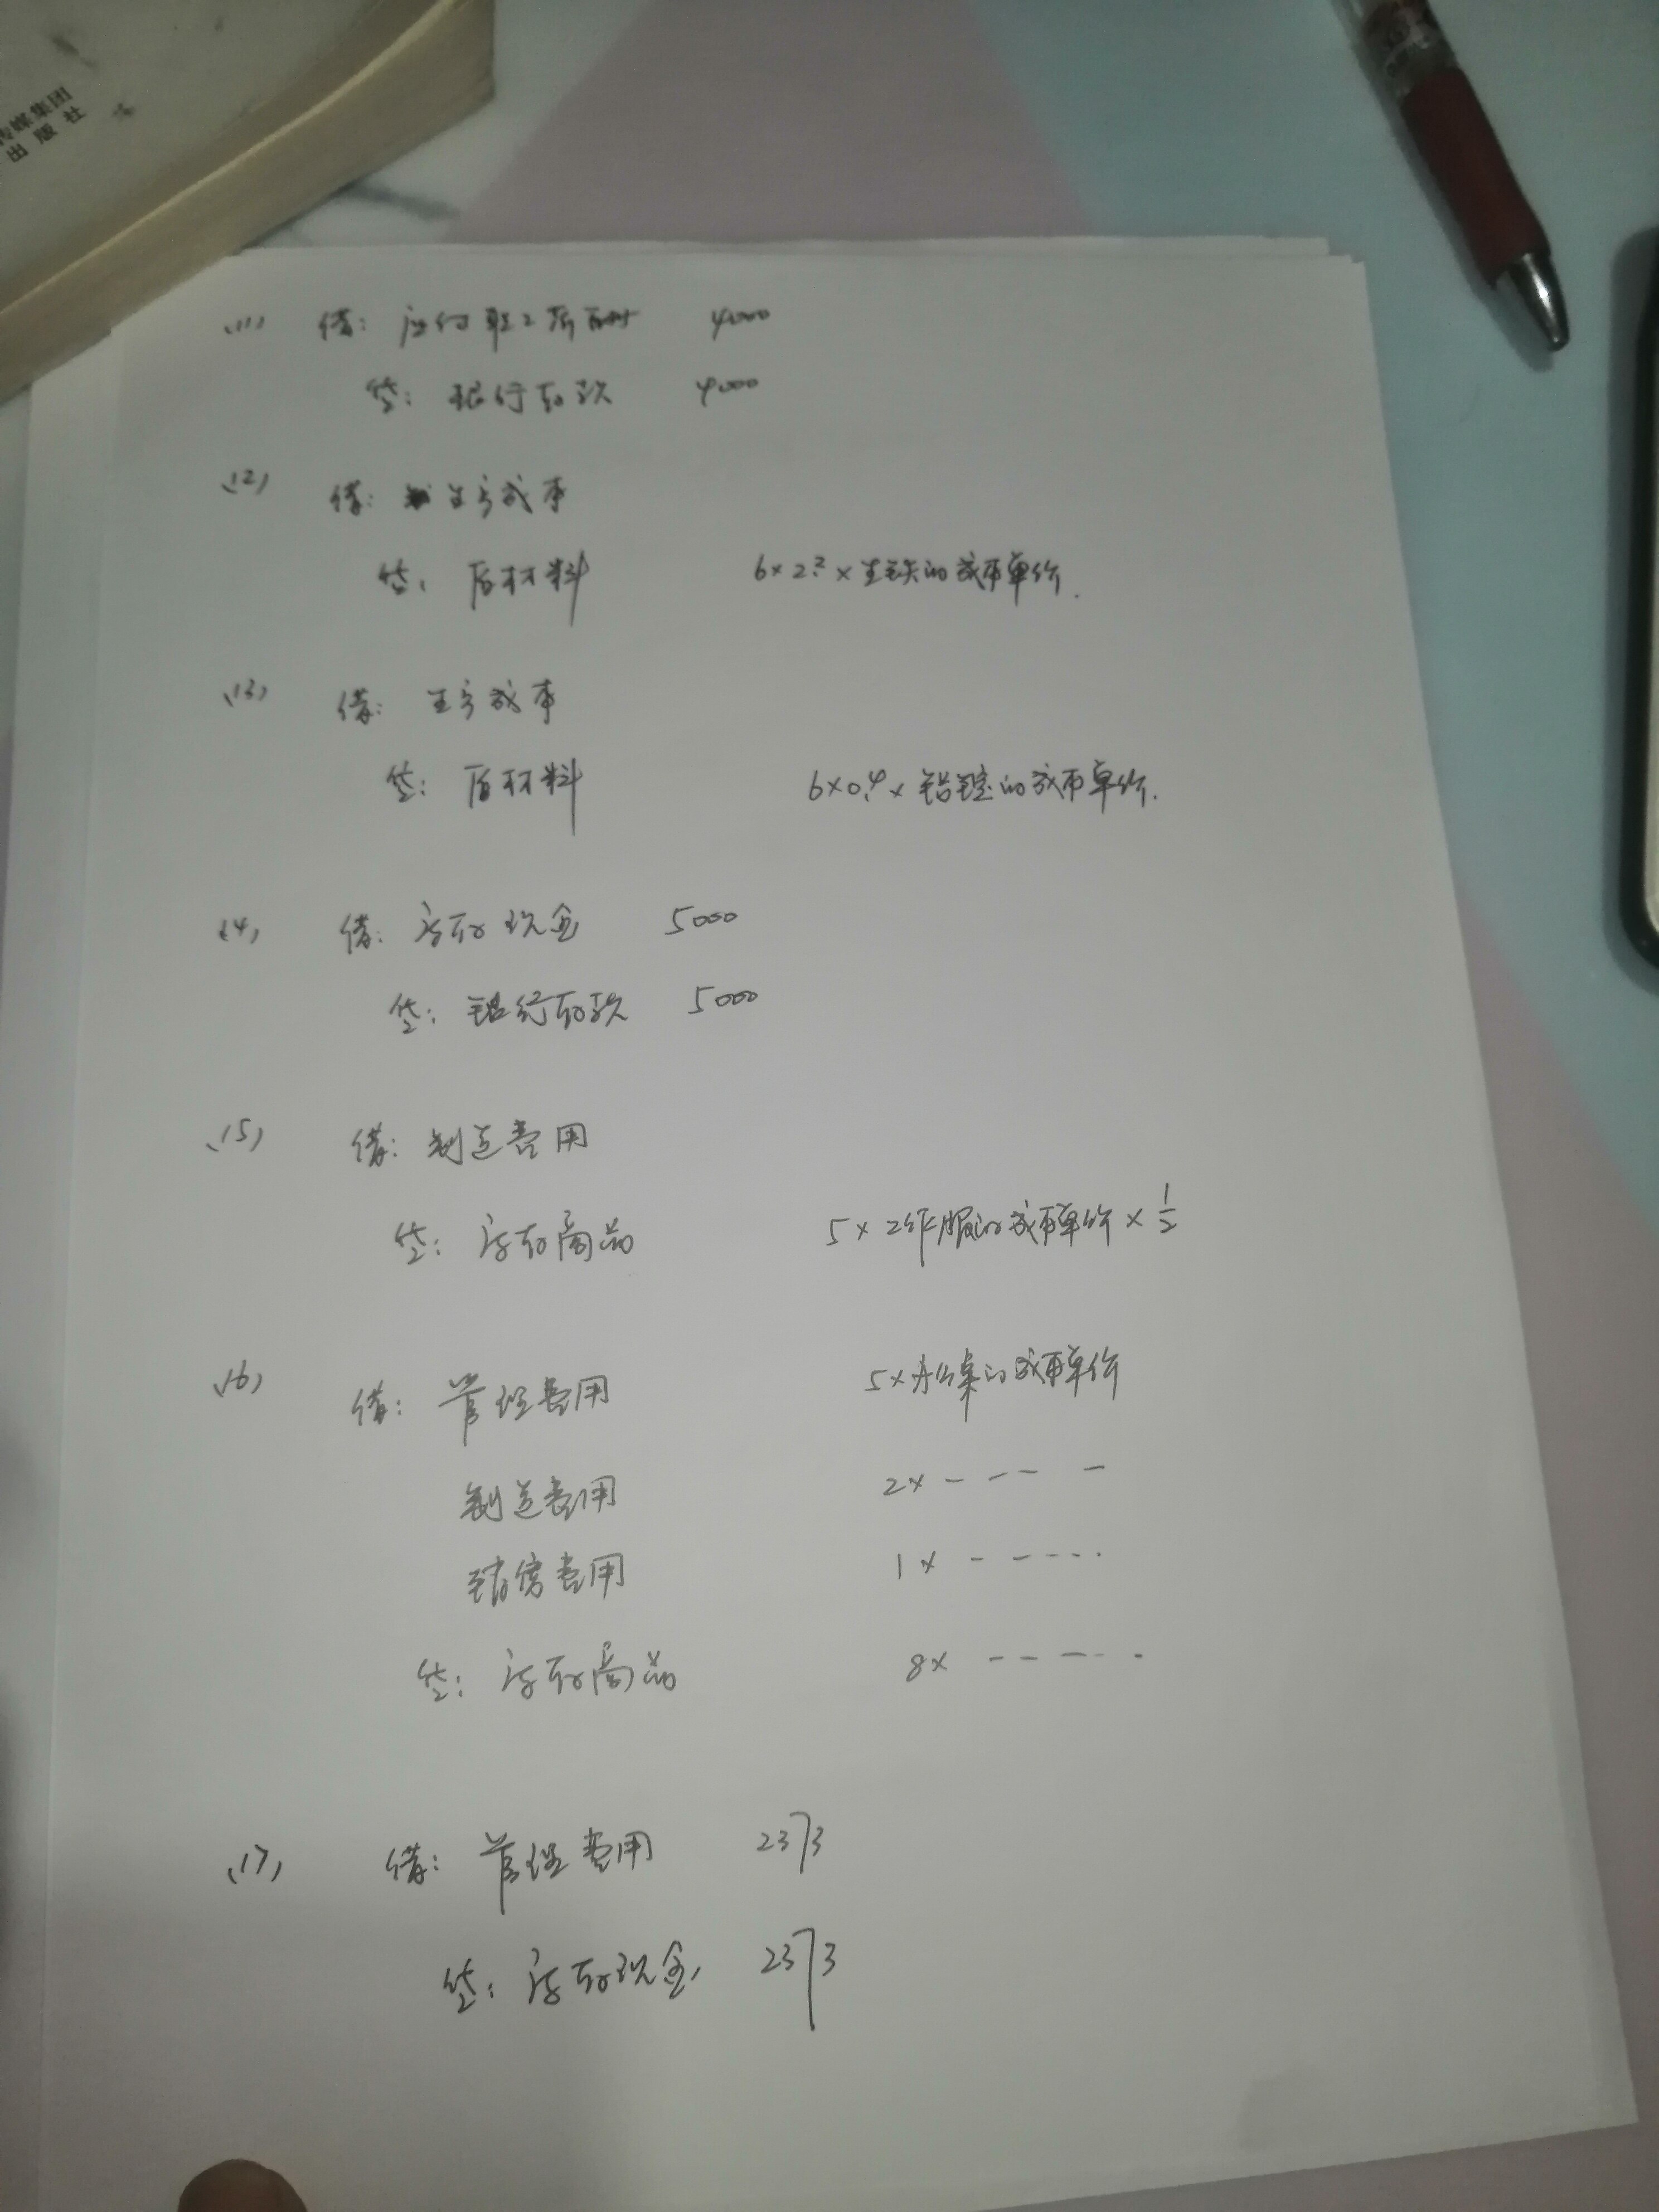 传媒集团
出版社
(1) 借: 应付职工薪酬 4000
贷: 银行存款 4000
(2) 借: 生产成本
贷: 原材料 6×2.2×生铁的成本单价.
(3) 借: 生产成本
贷: 原材料 6×0.4×铝锭的成本单价.
(4) 借: 库存现金 5000
贷: 银行存款 5000
(5) 借: 制造费用
贷: 库存商品 5×工作服的成本单价×1/2
(6) 借: 管理费用 5×办公桌的成本单价
制造费用 2× - - - -
销售费用 1× - - - - -
贷: 库存商品 8× - - - - -
(7) 借: 管理费用 2373
贷: 库存现金 2373